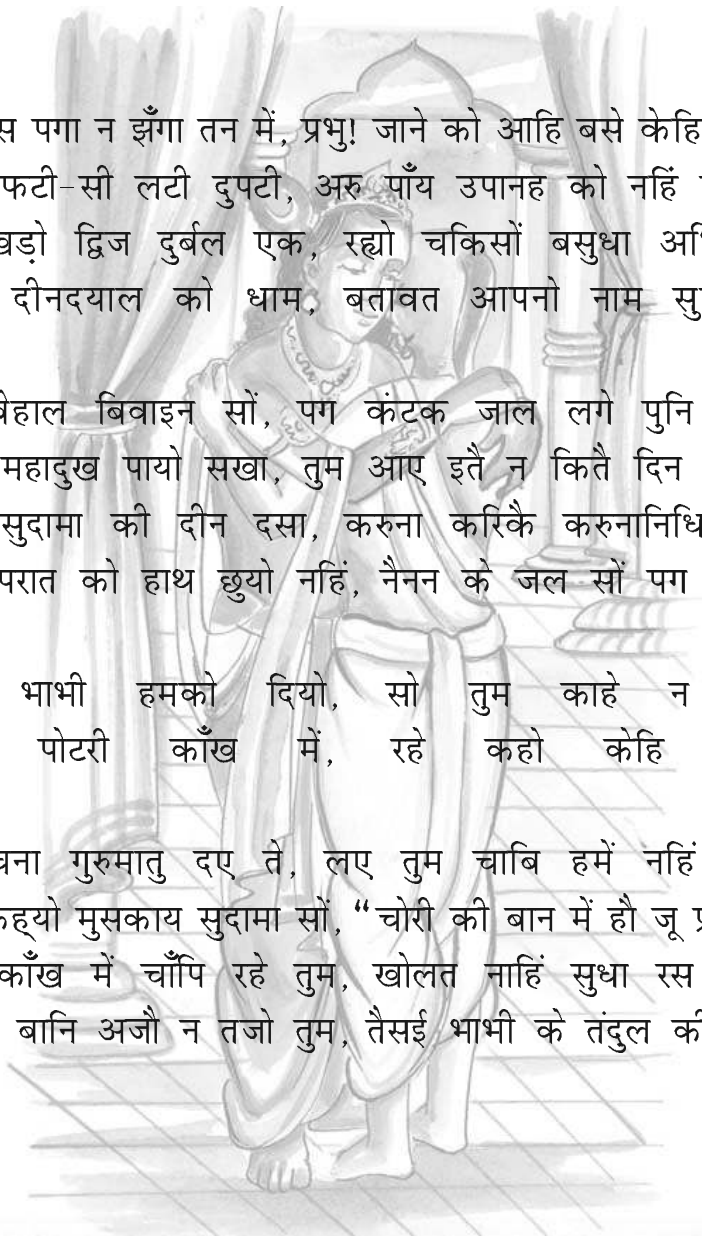 स पगा न झँगा तन में, प्रभु! जाने को आहि बसे केहि
फटी-सी लटी दुपटी, अरु पाँय उपानह को नहिं
खड़ो द्विज दुर्बल एक, रह्यो चकिसों बसुधा
दीनदयाल को धाम, बतावत आपनो नाम सु
बेहाल बिवाइन सों, पग कंटक जाल लगे पुनि
महादुख पायो सखा, तुम आए इतै न कितै दिन
सुदामा की दीन दसा, करुना करिकै करुनानिधि
परात को हाथ छुयो नहिं, नैनन के जल सों पग
भाभी हमको दियो, सो तुम काहे न
पोटरी काँख में, रहे कहो केहि
चना गुरुमातु दए ते, लए तुम चाबि हमें नहिं
कह्यो मुसकाय सुदामा सों, “चोरी की बान में हौ जू
काँख में चाँपि रहे तुम, खोलत नाहिं सुधा रस
बानि अजौ न तजो तुम, तैसई भाभी के तंदुल